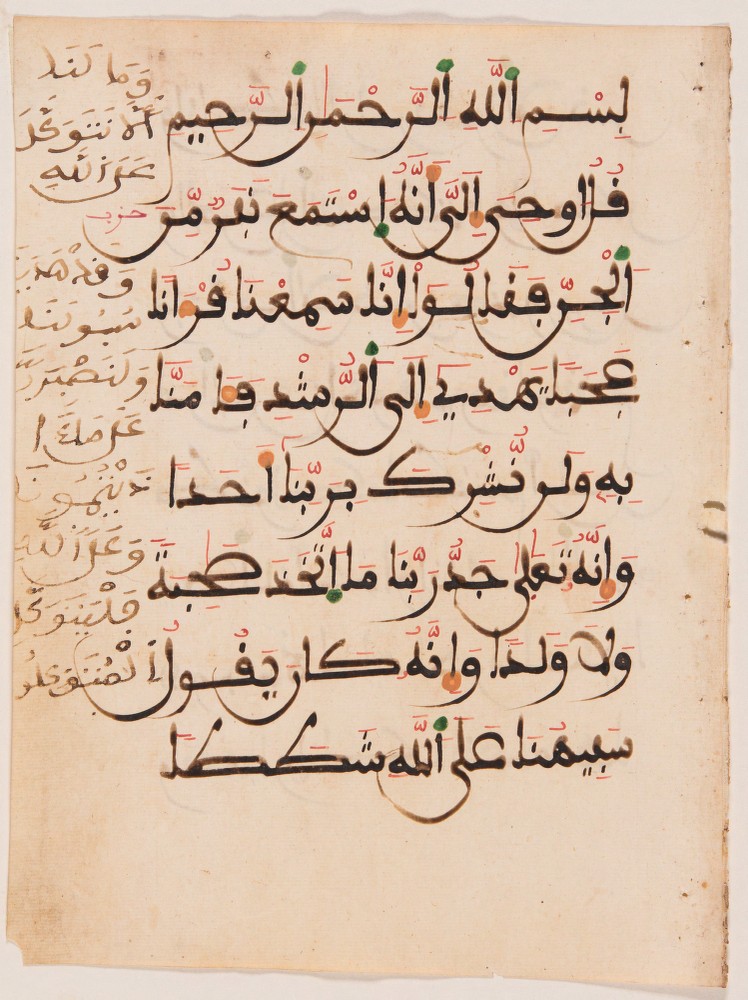 بِسْمِ اللَّهِ الرَّحْمَٰنِ الرَّحِيمِ
قُلُ اوحِيَ إِلَيَّ أَنَّهُ اسْتَمَعَ نَفَرٌ مِّنَ
الْجِنِّ فَقَالُوا إِنَّا سَمِعْنَا قُرْآنًا
عَجَبًا يَهْدِي إِلَى الرُّشْدِ فَآمَنَّا
بِهِ وَلَن نُّشْرِكَ بِرَبِّنَا أَحَدًا
وَإِنَّهُ تَعَٰلَى جَدُّ رَبِّنَا مَا اتَّخَذَ صَٰحِبَةً
وَلَا وَلَدًا وَإِنَّهُ كَانَ يَقُولُ
سَفِيهُنَا عَلَى اللَّهِ شَطَطًا
حزب
وَمَا لَنَا
أَلَّا نَتَوَكَّلَ
عَلَى اللَّهِ
وَقَدْ هَدَينَا
سُبُلَنَا
وَلَنَصْبِرَنَّ
عَلَى مَا ءَا
ذَيْتُمُونَا
وَعَلَى اللَّهِ
فَلْيَتَوَكَّلِ
الْمُتَوَكِّلُونَ